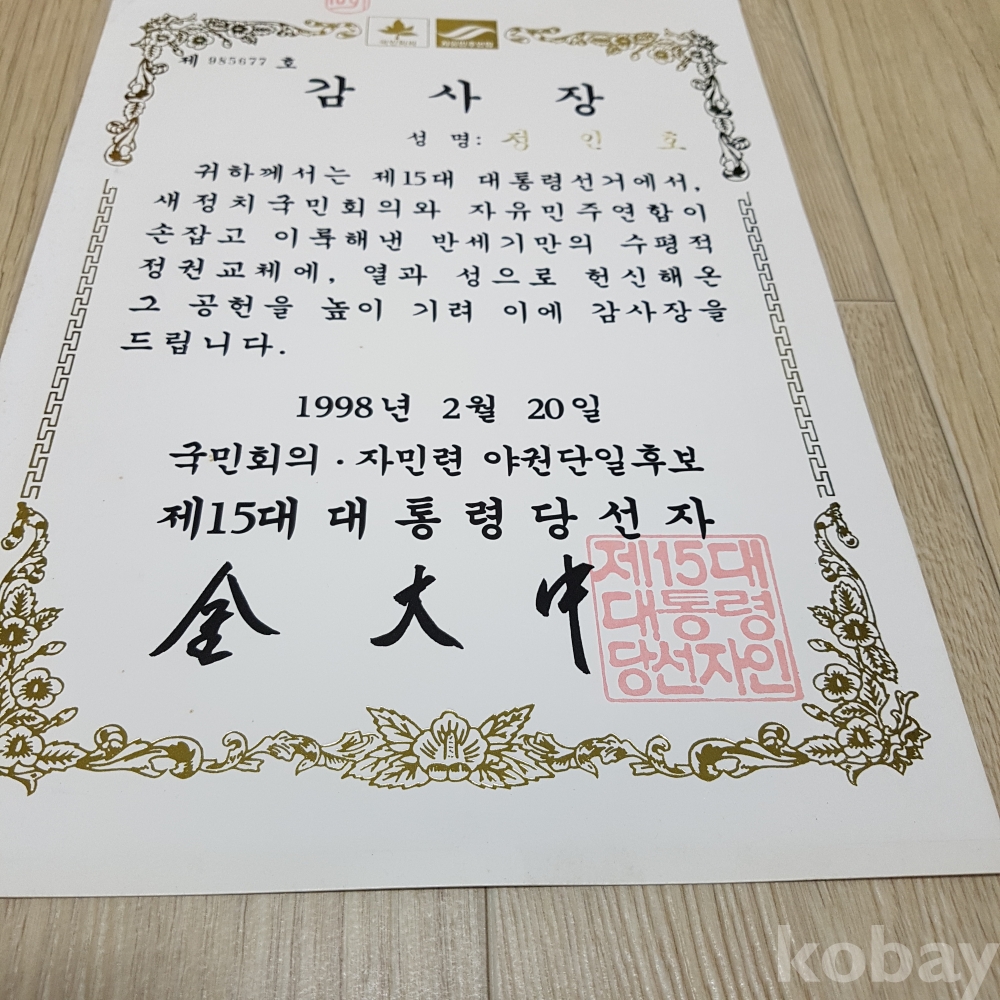 국민회의 자유민주연합
제 985677 호
감 사 장
성 명: 정 인 호
귀하께서는 제15대 대통령선거에서,
새정치국민회의와 자유민주연합이
손잡고 이룩해낸 반세기만의 수평적
정권교체에, 열과 성으로 헌신해온
그 공헌을 높이 기려 이에 감사장을
드립니다.
1998년 2월 20일
국민회의 · 자민련 야권단일후보
제15대 대통령당선자
金大中
제15대
대통령
당선자인
kobay